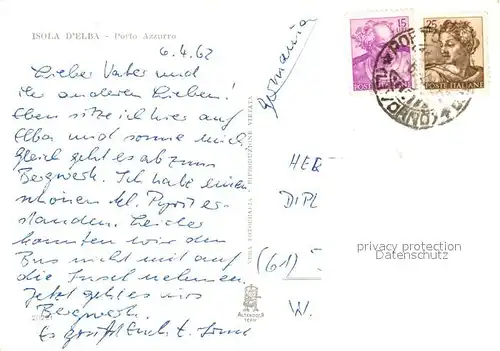 ISOLA D'ELBA - Porto Azzurro
6.4.62
Lieber Vater und
ihr anderen Lieben!
Eben sitze ich hier auf
Elba und sonne mich
gleich geht es ab zum
Bergwerk. Ich habe einen
schönen kl. Pyrit er-
standen. Leider
konnten wir den
Bus nicht mit auf
die Insel nehmen.
Jetzt geht es ins
Bergwerk.
Es grüßt Euch t.
Germania
VERA FOTOGRAFIA - RIPRODUZIONE VIETATA
ALTEROCCA
TERNI
15
POSTE ITALIANE
25
POSTE ITALIANE
(LIVORNO)
HER
DIPL
(61)
W.
privacy protection
AnsichtskartenLAPH